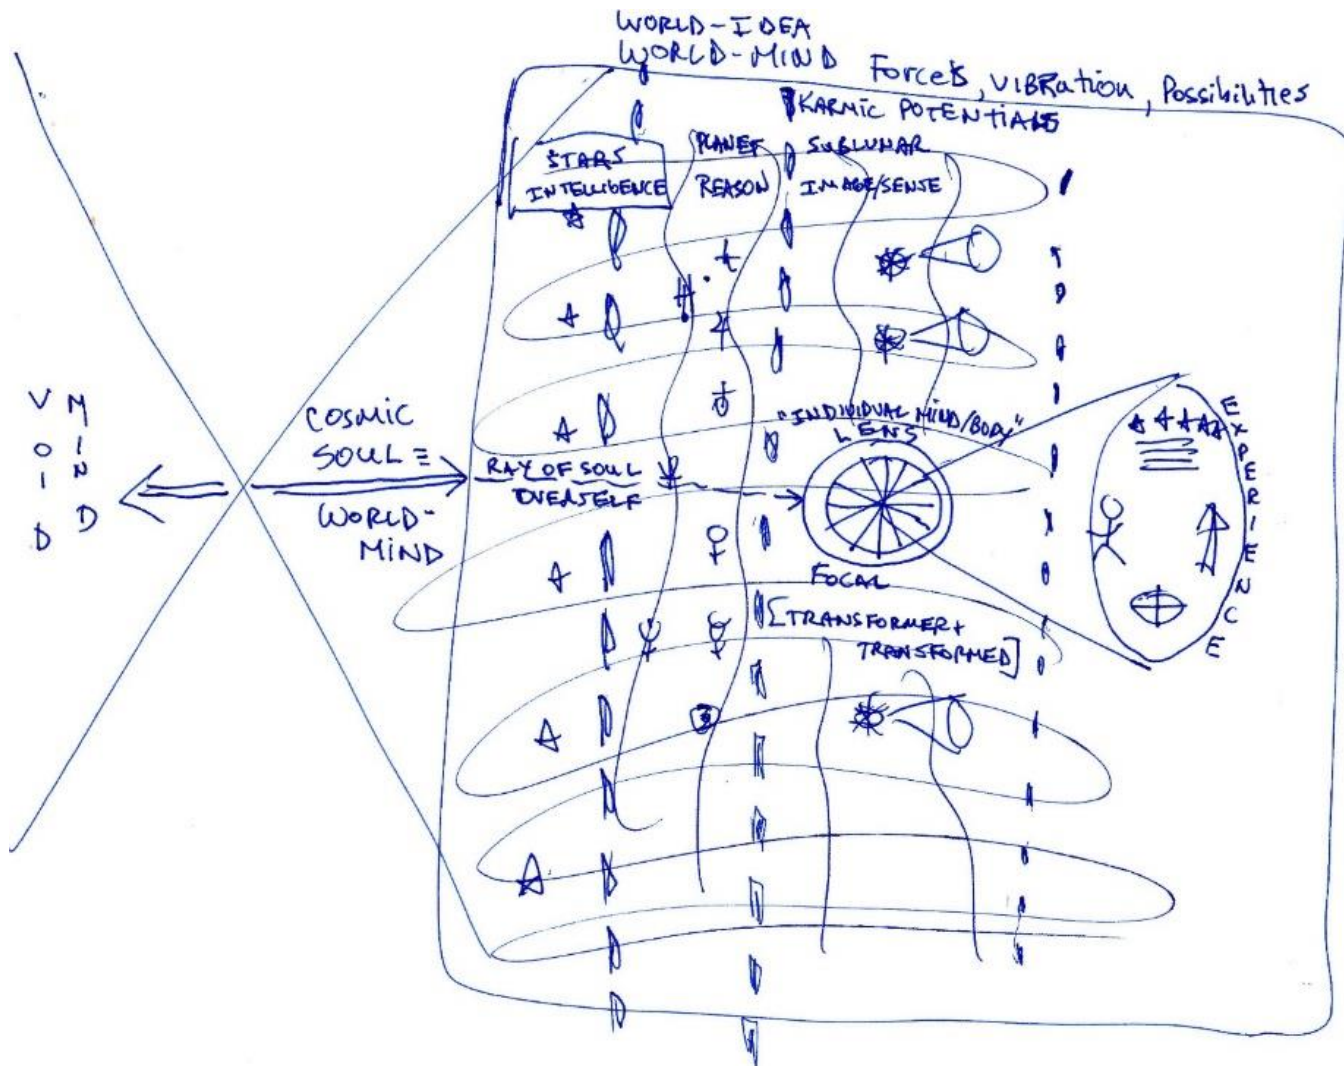 WORLD-IDEA
WORLD-MIND
Forces, VIBRation, Possibilities
KARMIC POTENTIALS
STARS
INTELLIGENCE
PLANET
REASON
SUBLUNAR
IMAGE/SENSE
VOID
MIND
COSMIC
SOUL ≡
WORLD-
MIND
RAY OF SOUL
OVERSELF
"INDIVIDUAL MIND/BODY"
LENS
FOCAL
[TRANSFORMER +
TRANSFORMED]
EXPERIENCE